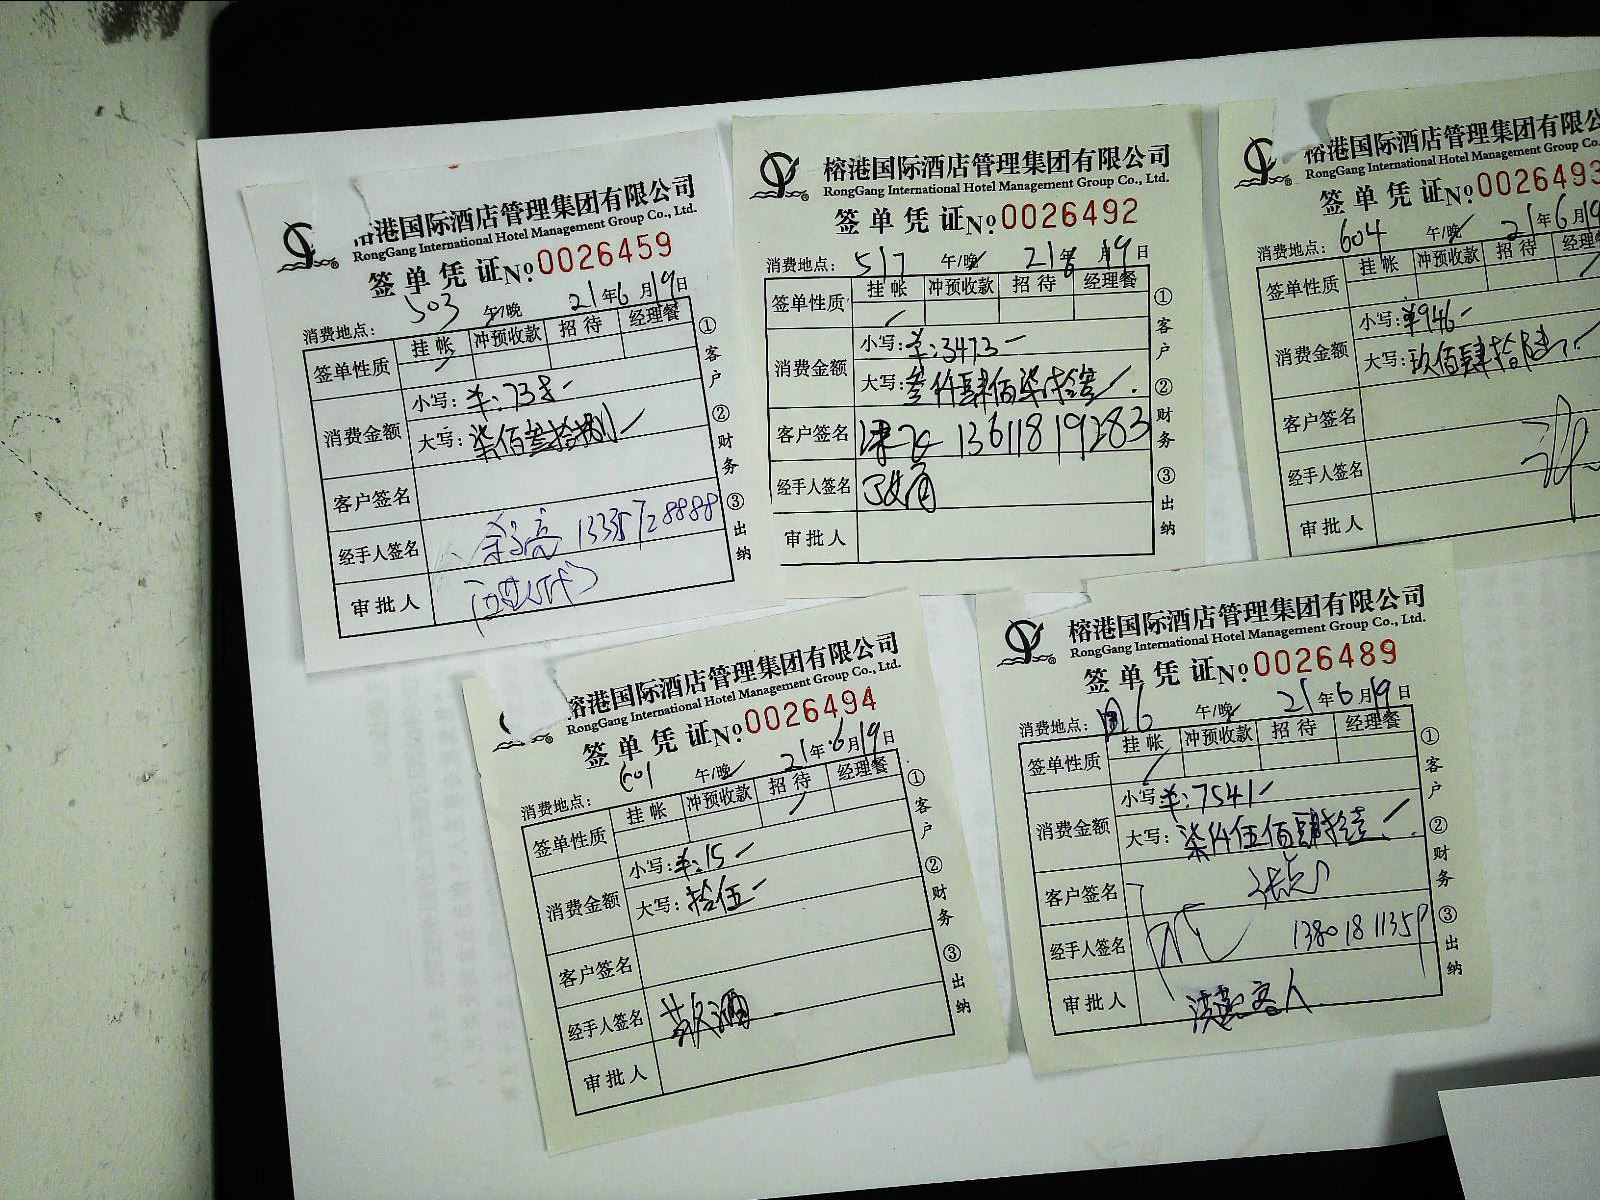 榕港国际酒店管理集团有限公司
RongGang International Hotel Management Group Co., Ltd.
签单凭证 No 0026459
消费地点: 503 午/晚 21年6月19日
签单性质 挂帐 冲预收款 招待 经理餐
消费金额
小写: ¥:738-
大写: 柒佰叁拾捌
客户签名
经手人签名 13357728888
审批人
①客户 ②财务 ③出纳
榕港国际酒店管理集团有限公司
RongGang International Hotel Management Group Co., Ltd.
签单凭证 No 0026492
消费地点: 517 午/晚 21年6月19日
签单性质 挂帐 冲预收款 招待 经理餐
消费金额
小写: ¥:3473-
大写: 叁仟肆佰柒拾叁
客户签名 13611819283
经手人签名
审批人
①客户 ②财务 ③出纳
榕港国际酒店管理集团有限公
RongGang International Hotel Management Group Co., Lt
签单凭证 No 0026493
消费地点: 604 午/晚 21年6月19
签单性质 挂帐 冲预收款 招待 经理
消费金额
小写: ¥946-
大写: 玖佰肆拾陆
客户签名
经手人签名
审批人
榕港国际酒店管理集团有限公司
RongGang International Hotel Management Group Co., Ltd.
签单凭证 No 0026494
消费地点: 601 午/晚 21年6月19日
签单性质 挂帐 冲预收款 招待 经理餐
消费金额
小写: ¥:15-
大写: 拾伍-
客户签名
经手人签名 敬酒
审批人
①客户 ②财务 ③出纳
榕港国际酒店管理集团有限公司
RongGang International Hotel Management Group Co., Ltd.
签单凭证 No 0026489
消费地点: 午/晚 21年6月19日
签单性质 挂帐 冲预收款 招待 经理餐
消费金额
小写: ¥:7541-
大写: 柒仟伍佰肆拾壹
客户签名
经手人签名
审批人 客人
①客户 ②财务 ③出纳